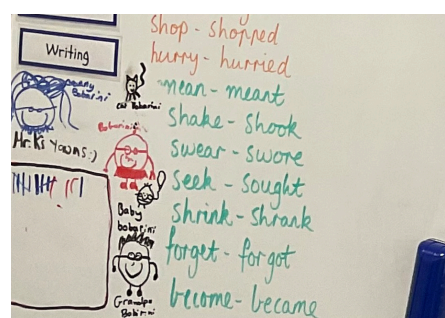 Writing
shop - shopped
hurry - hurried
mean - meant
shake - shook
swear - swore
seek - sought
shrink - shrank
forget - forgot
become - became
Bobarini
Cat Bobarini
Bobarini
Mr. K's
Baby
bobarini
Grandpa
Bobirini